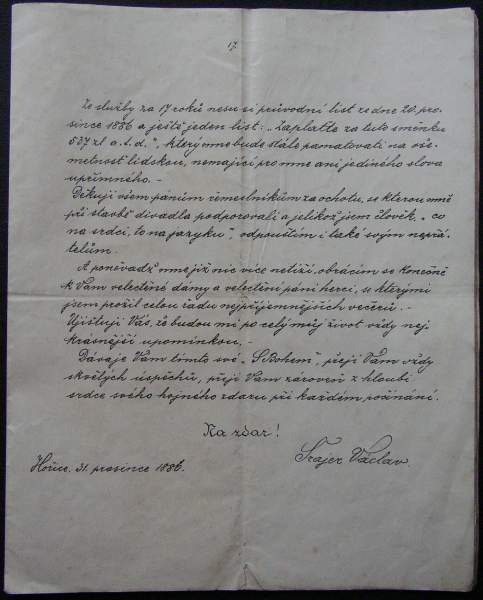 17.
Ze služby za 17 roků nesu si průvodní list ze dne 20. pro-
since 1886 a ještě jeden list: „Zaplaťte za tuto směnku
527 zl a.t.d.", který mne bude stále pamatovati na oše-
metnost lidskou, nemající pro mne ani jediného slova
upřímného. –
Děkuji všem pánům řemeslníkům za ochotu, se kterou mně
při stavbě divadla podporovali a jelikož jsem člověk „co
na srdci, to na jazyku", odpouštím i také svým nepřá-
telům.
A poněvadž mne již nic více netíží, obracím se konečně
k Vám velectěné dámy a velectění páni herci, se kterými
jsem prožil celou řadu nejpříjemnějších večerů. –
Ujišťuji Vás, že budou mi po celý můj život vždy nej
krásnější upomínkou. –
Dávaje Vám tímto své „S Bohem", přeji Vám vždy
skvělých úspěchů, přeji Vám zároveň z hloubi
srdce svého hojného zdaru při každém počínání.
Na zdar!
Hořice, 31. prosince 1886.
Václav.